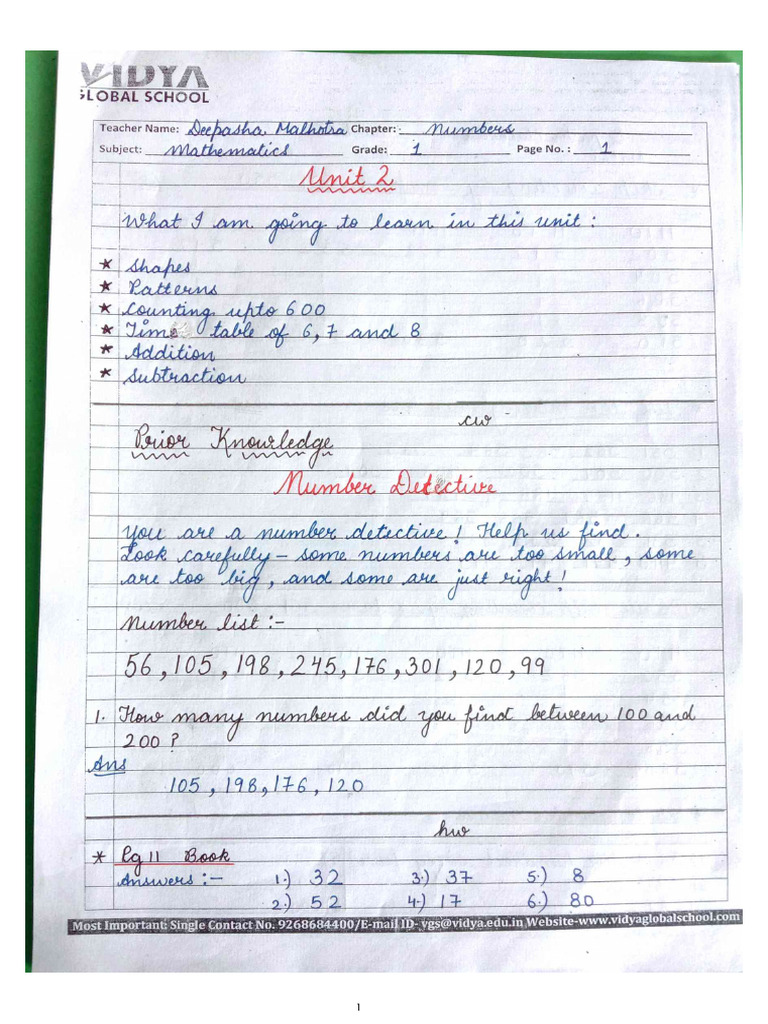 VIDYA
GLOBAL SCHOOL
Teacher Name: Deepasha Malhotra Chapter: Numbers
Subject: Mathematics Grade: 1 Page No. : 1
Unit 2
What I am going to learn in this unit :
* Shapes
* Patterns
* Counting upto 600
* Time table of 6, 7 and 8
* Addition
* Subtraction
cw
Prior Knowledge
Number Detective
You are a number detective! Help us find.
Look carefully - some numbers are too small, some
are too big, and some are just right!
Number list :-
56, 105, 198, 245, 176, 301, 120, 99
1. How many numbers did you find between 100 and
200 ?
Ans
105, 198, 176, 120
hw
* Pg 11 Book
Answers :- 1.) 32 3.) 37 5.) 8
2.) 52 4.) 17 6.) 80
Most Important: Single Contact No. 9268684400/E-mail ID- vgs@vidya.edu.in Website-www.vidyaglobalschool.com
1